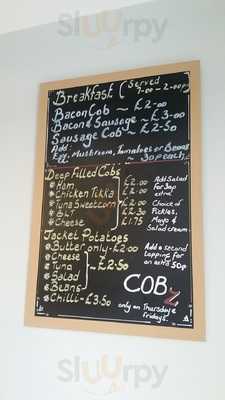 Sluurpy
Breakfast (Served
7-00 - 2-00pm)
Bacon Cob ~ £2-00
Bacon & Sausage ~ £3-00
Sausage Cob ~ £2-50
Add:-
Egg, Mushroom, Tomatoes or Beans
~ 30p each
Deep Filled Cobs
* Ham £2-00
* Chicken Tikka £2-00
* Tuna Sweetcorn
* BLT £2-30
* Cheese £1-75
Add Salad
for 30p
extra!
Choice of
Pickles,
Mayo &
Salad cream
Jacket Potatoes
* Butter only - £2-00
* Cheese
* Tuna
* Salad
* Beans
~ £2-50
* Chilli - £3-50
Add a second
topping for
an extra 50p
COBz
only on Thursdays
Fridays.
Sluurpy